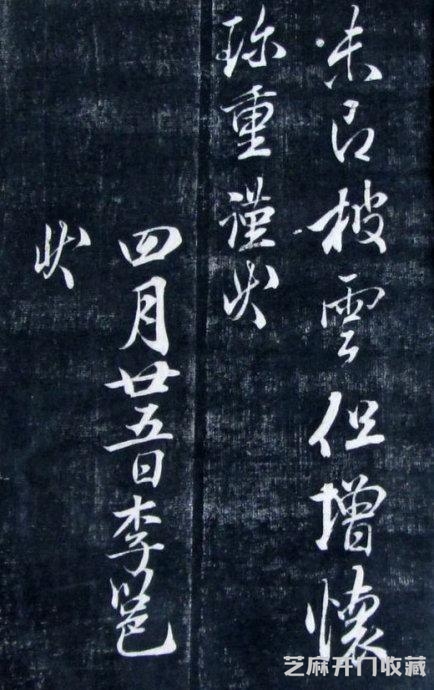 未即披雲但增懷
珎重謹狀
四月廿五日李邕
狀
芝麻开门收藏